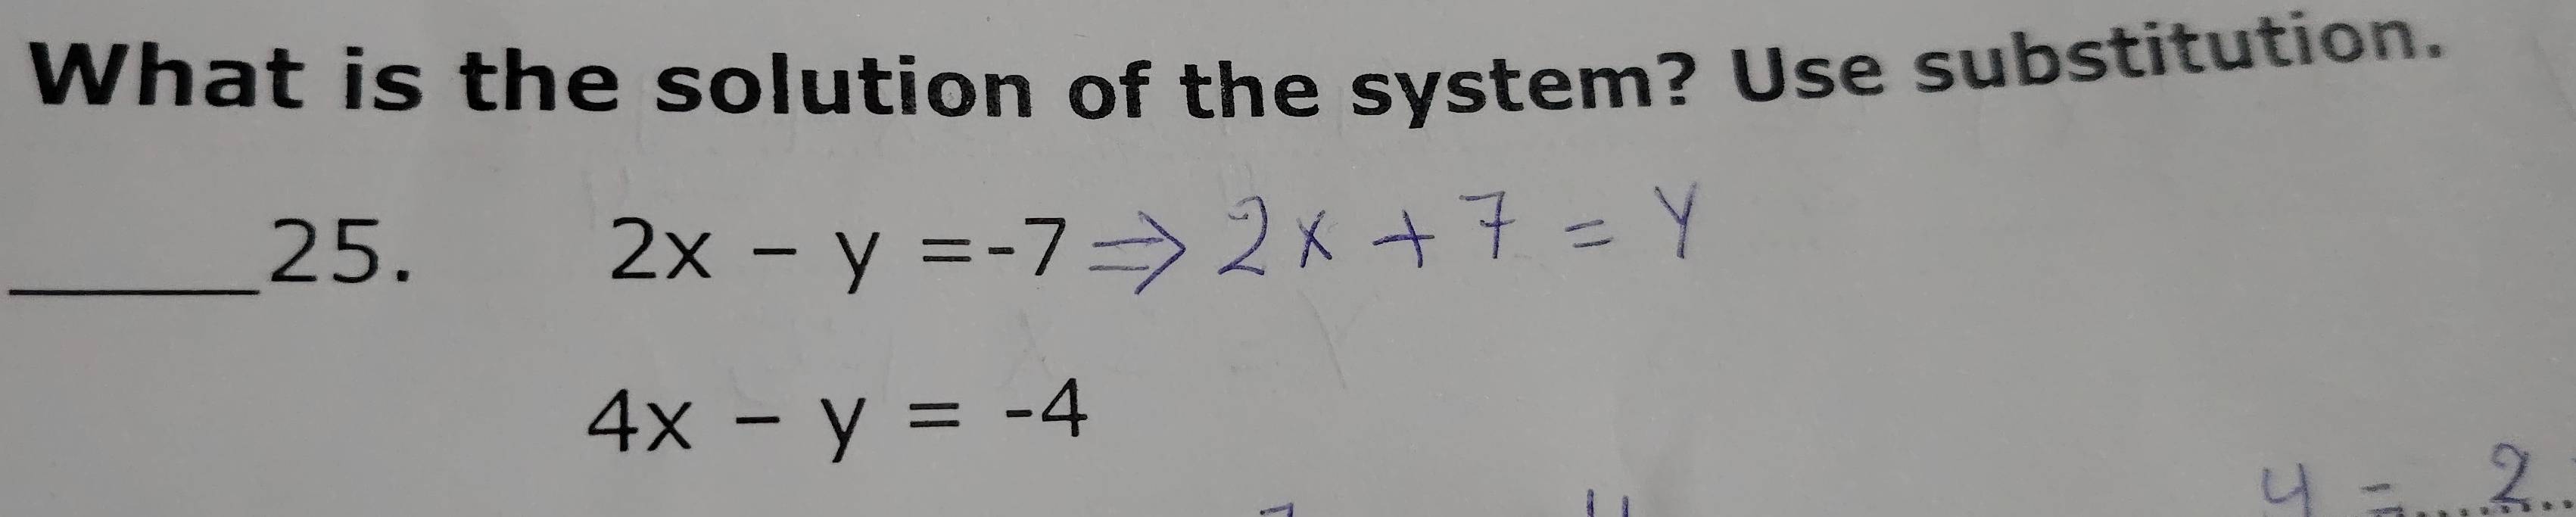 What is the solution of the system? Use substitution.
_____25. 2x – y =-7 ⇒ 2x + 7 = y
4x – y = -4
y = 2